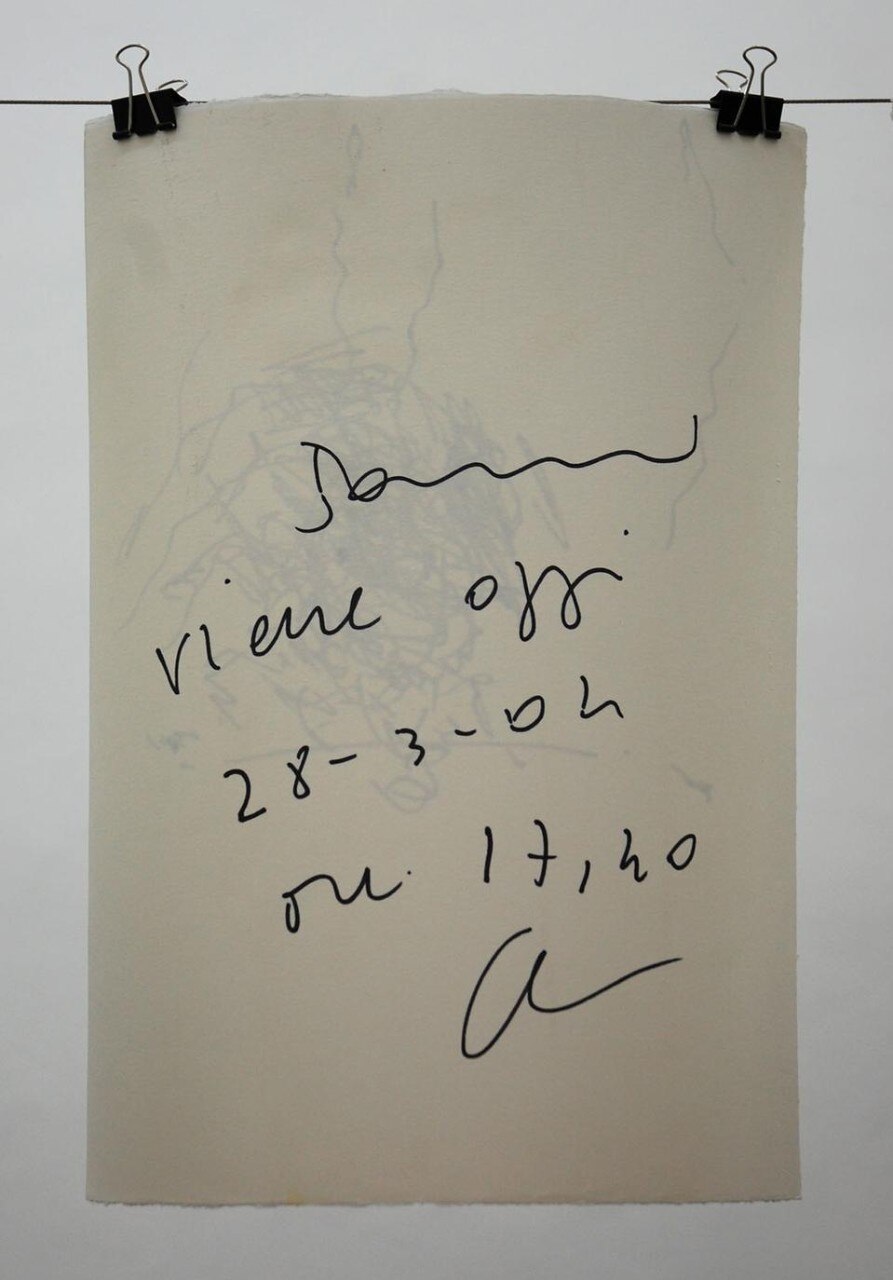 viene oggi
28-3-04
ore 17,40